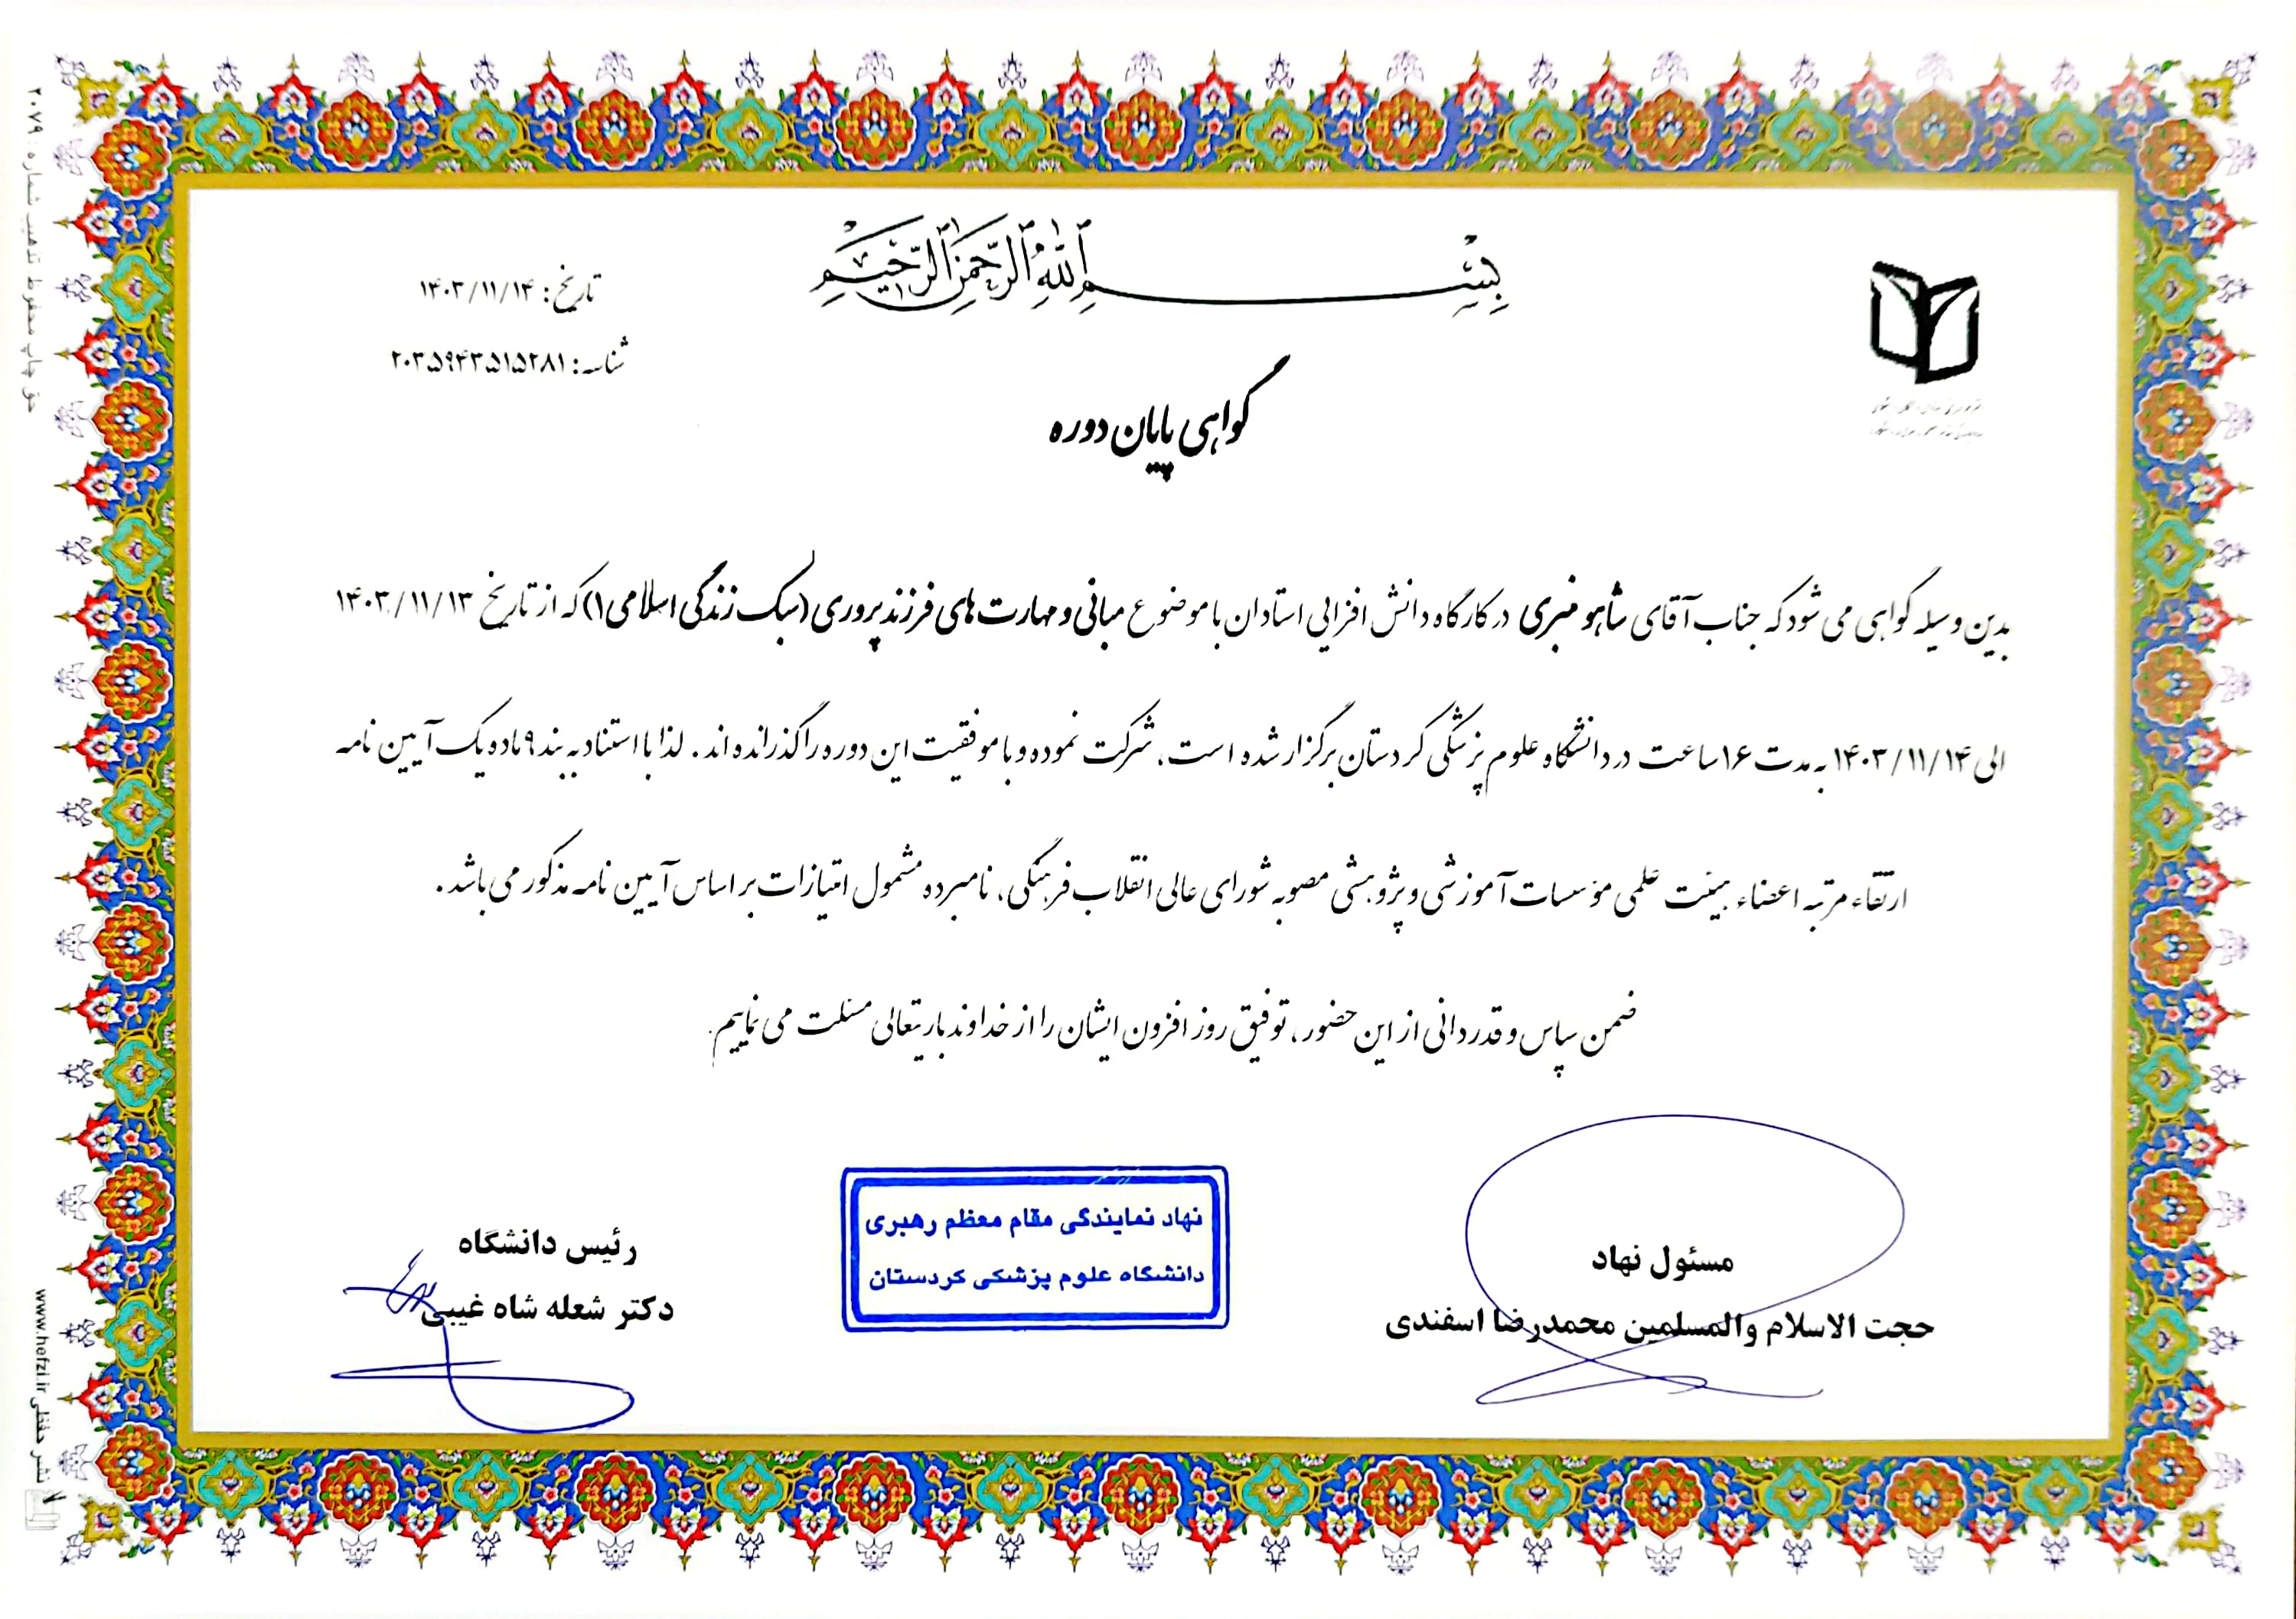 بسم الله الرحمن الرحیم
تاریخ: ۱۴۰۳/۱۱/۱۴
شناسه: ۲۰۳۵۹۴۳۵۱۵۲۸۱
گواهی پایان دوره
بدین وسیله گواهی می شود که جناب آقای شاهو منبری در کارگاه دانش افزایی استادان با موضوع مبانی و مهارت های فرزندپروری (سبک زندگی اسلامی۱) که از تاریخ ۱۴۰۳/۱۱/۱۳
الی ۱۴۰۳/۱۱/۱۴ به مدت ۱۶ ساعت در دانشگاه علوم پزشکی کردستان برگزار شده است، شرکت نموده و با موفقیت این دوره را گذرانده اند. لذا با استناد به بند ۹ ماده یک آیین نامه
ارتقاء مرتبه اعضاء هیئت علمی مؤسسات آموزشی و پژوهشی مصوبه شورای عالی انقلاب فرهنگی، نامبرده مشمول امتیازات بر اساس آیین نامه مذکور می باشد.
ضمن سپاس و قدردانی از این حضور، توفیق روز افزون ایشان را از خداوند باریتعالی مسئلت می نماییم.
مسئول نهاد
حجت الاسلام والمسلمین محمدرضا اسفندی
نهاد نمایندگی مقام معظم رهبری
دانشگاه علوم پزشکی کردستان
رئیس دانشگاه
دکتر شعله شاه غیبی
حق چاپ محفوظ تذهیب شماره: ۲۰۷۹
نشر حفظی www.hefzi.ir